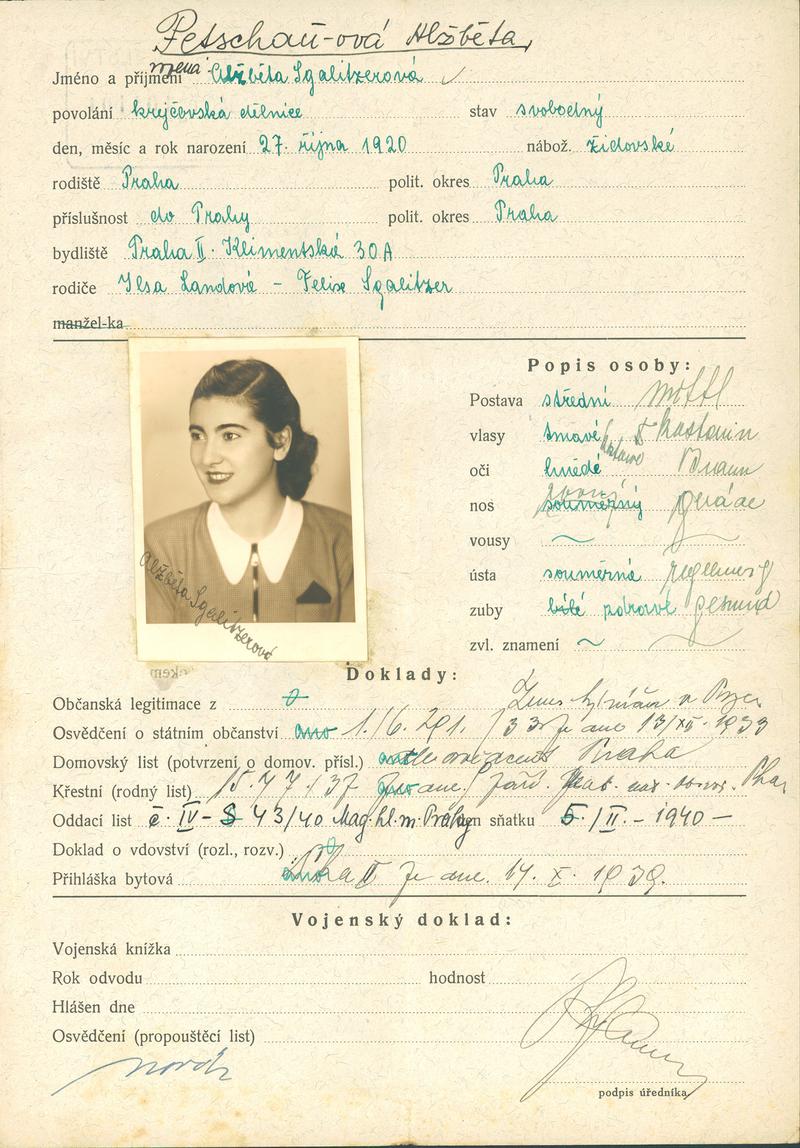 Petschau-ová Alžběta,
Jméno a příjmení Alžběta Sgalitzerová
povolání krejčovská dělnice stav svobodný
den, měsíc a rok narození 27. října 1920 nábož. židovské
rodiště Praha polit. okres Praha
příslušnost do Prahy polit. okres Praha
bydliště Praha II. Klimentská 30A
rodiče Ilsa Landová - Felix Sgalitzer
manžel-ka
Popis osoby:
Postava střední mittl
vlasy tmavé kastanin
oči hnědé Braun
nos souměrný gerade
vousy
ústa souměrná
zuby bílé zdravé gesund
zvl. znamení
Alžběta Sgalitzerová
Doklady:
Občanská legitimace z
Osvědčení o státním občanství ano 13/XII. 1933
Domovský list (potvrzení o domov. přísl.) Praha
Křestní (rodný list)
Oddací list č. IV- 43/40 Mag. hl. m. Prahy sňatku 5./II. - 1940 -
Doklad o vdovství (rozl., rozv.)
Přihláška bytová ano II ze dne 14. X. 1939.
Vojenský doklad:
Vojenská knížka
Rok odvodu hodnost
Hlášen dne
Osvědčení (propouštěcí list)
podpis úředníka